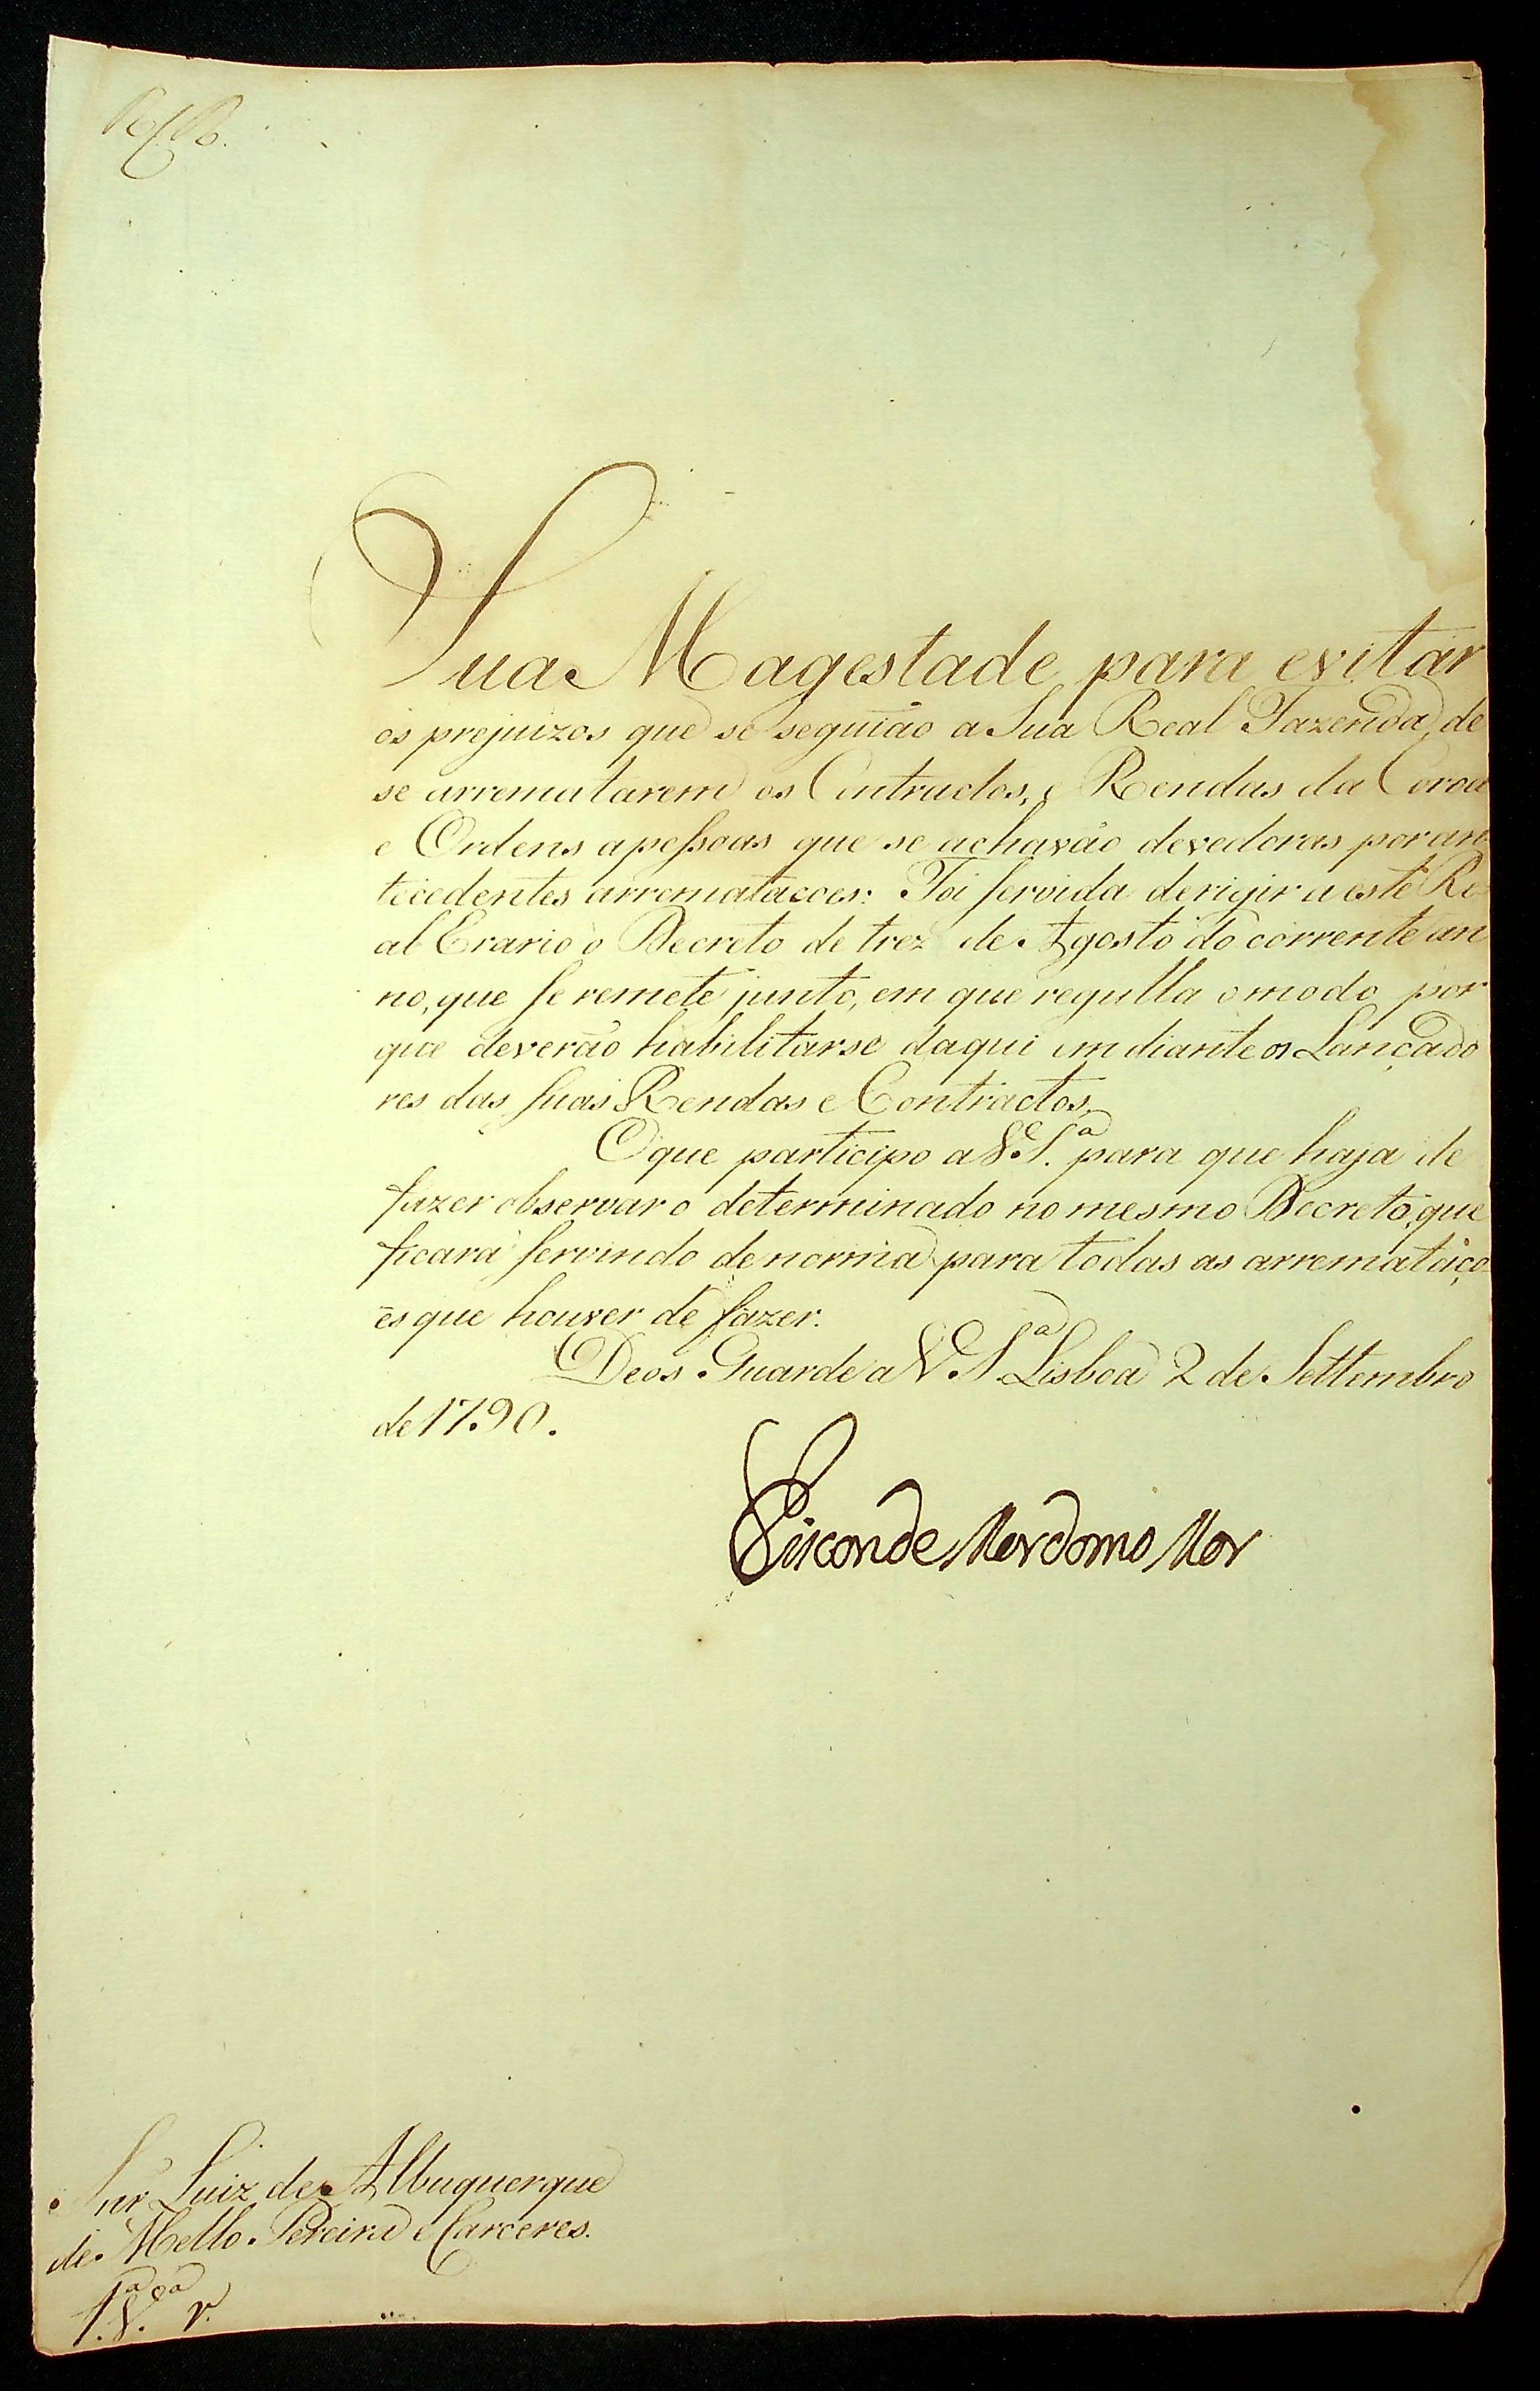 Sua Magestade para evitar
os prejuizos que se seguião a Sua Real Fazenda, de
se arrematarem os Contractos, e Rendas da Coroa
e Ordens a peſsoas que se achavão devedoras por an-
tecedentes arrematacoes: Foi ſervida derigir a este Re-
al Erario o Decreto de trez de Agosto do corrente an
no, que ſe remete junto, em que regulla o modo por
que deverão habilitarse daqui em diante os Lançado
res das ſuas Rendas e Contractos.
O que participo a V. S.ª para que haja de
fazer observar o determinado no mesmo Decreto, que
ficará ſervindo de norma para todas as arremataço-
es que houver de fazer.
Deos Guarde a V. S.ª Lisboa 2 de Settembro
de 1790.
Visconde Mordomo Mor
Snr Luiz de Albuquerque
de Mello Pereira e Carceres.
1.ª V.ª